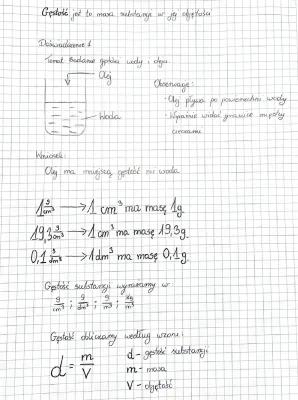 Gęstość jest to masa substancji w jej objętości
Doświadczenie 1
Temat: Badanie gęstości wody i oleju
Olej
Woda
Obserwacje:
· Olej pływa po powierzchni wody
· Wyraźnie widać granicę między
cieczami
Wniosek:
Olej ma mniejszą gęstość niż woda
1 g/cm³ → 1 cm³ ma masę 1g.
19,3 g/cm³ → 1 cm³ ma masę 19,3g.
0,1 g/dm³ → 1 dm³ ma masę 0,1g.
Gęstość substancji wyrażamy w
g/cm³ ; g/dm³ ; g/m³ ; kg/m³
Gęstość obliczamy według wzoru:
d = m/V
d - gęstość substancji
m - masa
V - objętość